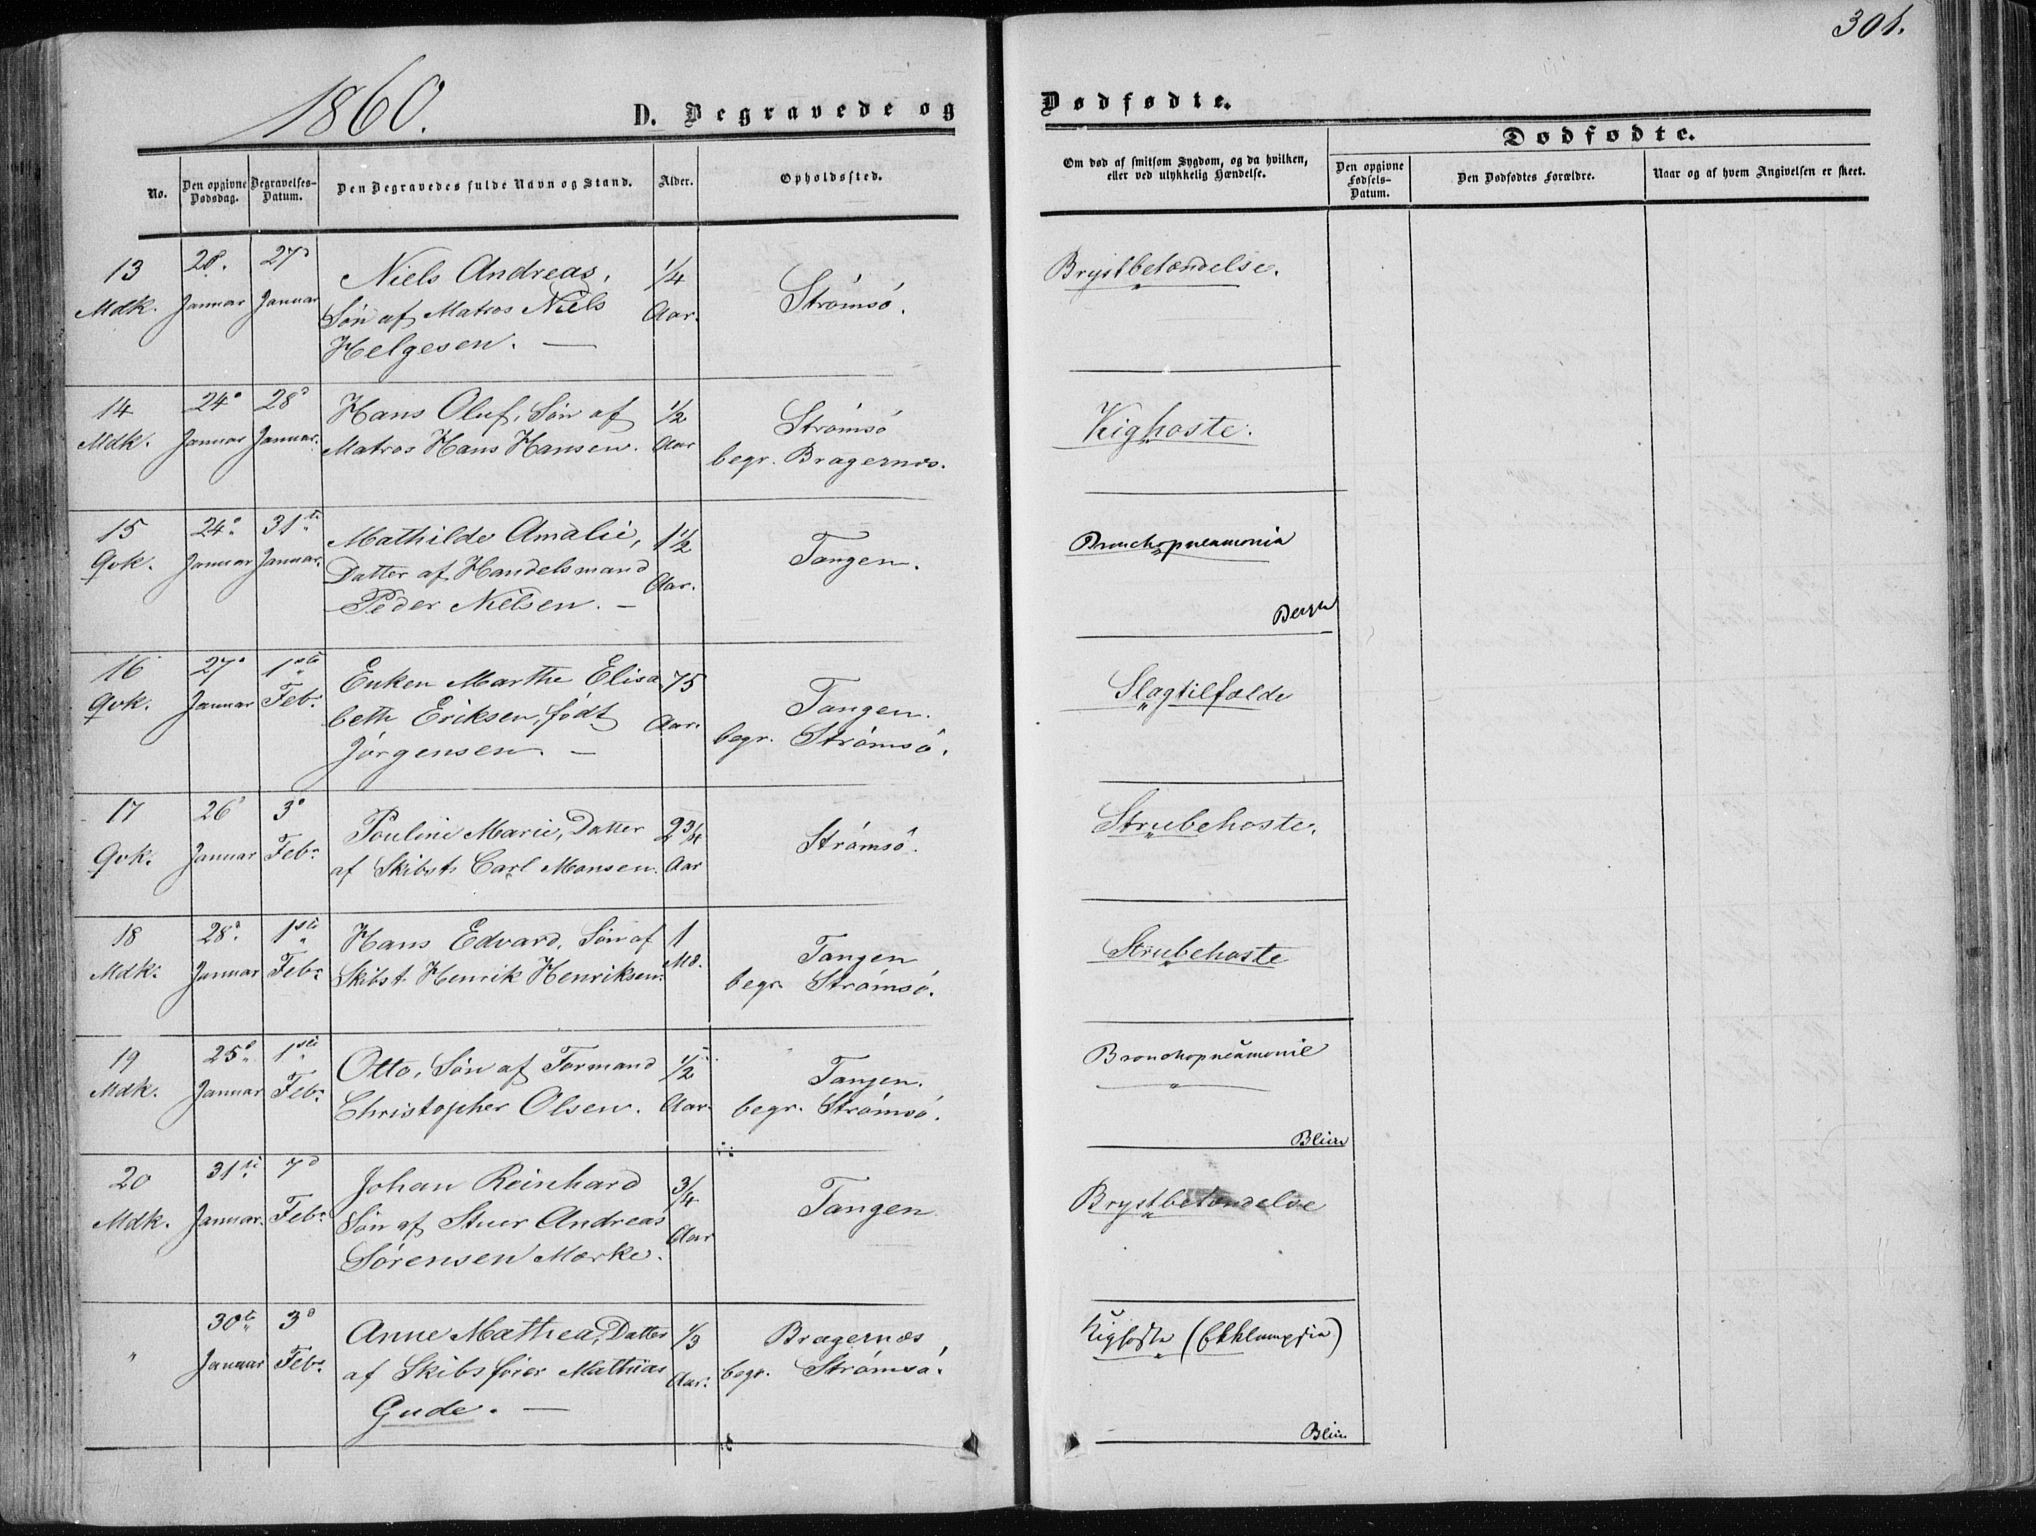 301.
1860.
D. Begravede og Dødfødte.
No.
Den opgivne Dødsdag.
Begravelses-Datum.
Den Begravedes fulde Navn og Stand.
Alder.
Opholdssted.
Om død af smitsom Sygdom, og da hvilken, eller ved ulykkelig Hændelse.
Dødfødte.
Den opgivne Fødsels-Datum.
Den Dødfødtes Forældre.
Naar og af hvem Angivelsen er skeet.
13 Mdk.
Januar
27d Januar
Niels Andreas,
Søn af Matros Niels
Helgesen. —
1/4 Aar.
Strømsø.
Brystbetændelse.
14 Mdk.
24d Januar
28d Januar.
Hans Oluf, Søn af
Matros Hans Hansen.
1/2 Aar
Strømsø
begr. Bragernæs.
Kighoste.
15 Qvk.
24d Januar
31te Januar.
Mathilde Amalie,
Datter af Handelsmand
Peder Nielsen. —
1 1/2 Aar.
Tangen.
Bronchopneumonia
16 Qvk.
27d Januar
1ste Feb.
Enken Marthe Elisa
beth Eriksen, født
Jørgensen. —
75 Aar.
Tangen.
begr. Strømsø.
Slagtilfælde
17 Qvk.
26d Januar
3d Febr
Pouline Marie, Datter
af Skibst. Carl Monsen.
2 3/4 Aar
Strømsø.
Strubehoste.
18 Mdk.
28d Januar
1ste Febr
Hans Edvard, Søn af
Skibst. Henrik Henriksen.
1 Md.
Tangen
begr. Strømsø.
Strubehoste
19 Mdk.
25d Januar
1ste Febr
Otto, Søn af Formand
Christopher Olsen.
1/2 Aar.
Tangen.
begr. Strømsø.
Bronchopneumonie
20 Mdk.
31te Januar.
7d Febr
Johan Reinhard
Søn af Stuer Andreas
Sørensen Mørke.
3/4 Aar
Tangen
Brystbetændelse
"
30te Januar
3d Febr
Anne Mathea, Datter
af Skibsfører Mathias
Gude. —
1/3 Aar.
Bragernæs
begr. Strømsø.
Kighoste (Ekklampsia)